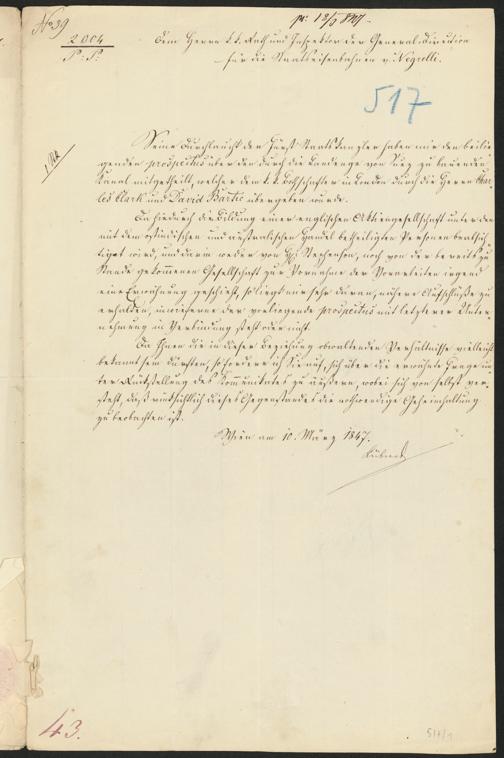 No 39
pr: 12/3 847.
2004
P. P.
Dem Herrn k. k. Rath und Inspektor der General-Direktion
für die Staatseisenbahnen v. Negrelli.
517
1 Blk
Seine Durchlaucht der Fürst Staatskanzler haben mir den beilie-
genden prospectus über den durch die Landenge von Suez zu bauenden
Kanal mitgetheilt, welcher dem k. k. Bothschafter in London durch die Herrn Char-
les Clark und David Bartie übergeben wurde.
Da hiedurch die Bildung einer englischen Aktiengesellschaft unter den
mit dem ostindischen und australischen Handel betheiligten Personen beabsich-
tiget wird, und darin weder von Hr. Stephenson, noch von der bereits zu
Stande gekommenen Gesellschaft zur Vornahme der Vorarbeiten irgend
eine Erwähnung geschieht, so liegt mir sehr daran, nähere Aufschlüße zu
erhalten, inwieferne der vorliegende prospectus mit letzterer Unter-
nehmung in Verbindung steht oder nicht.
Da Ihnen die in dieser Beziehung obwaltenden Verhältnisse vielleicht
bekannt sein dürften, so fordere ich Sie auf, sich über die erwähnte Frage un-
ter Rückstellung des Kommunikates zu äußern, wobei sich von selbst ver-
steht, daß rücksichtlich dieses Gegenstandes die nothwendige Geheimhaltung
zu beobachten ist.
Wien am 10. März 1847.
Kübeck
43.
517/1